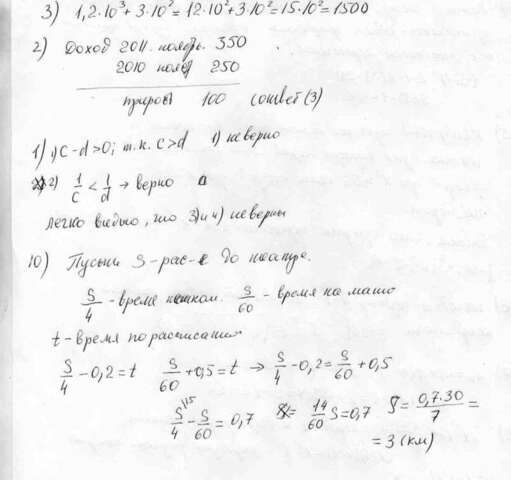 3) 1,2·10³+3·10²=12·10²+3·10²=15·10²=1500
2) Доход 2011. ноябрь. 350
2010 нояб 250
прирост 100 (ответ (3)
1) 1) c-d>0; т.к. c>d 1) неверно
2) 1/c < 1/d → верно
легко видно, что 3) и 4) неверны
10) Пусть S-рас-е до
S/4 - время пешком. S/60 - время на маши
t-время по расписанию
S/4 - 0,2 = t S/60 + 0,5 = t → S/4 - 0,2 = S/60 + 0,5
S/4 \15 - S/60 = 0,7 14/60 S = 0,7 S = 0,7·30/7 =
= 3 (км)